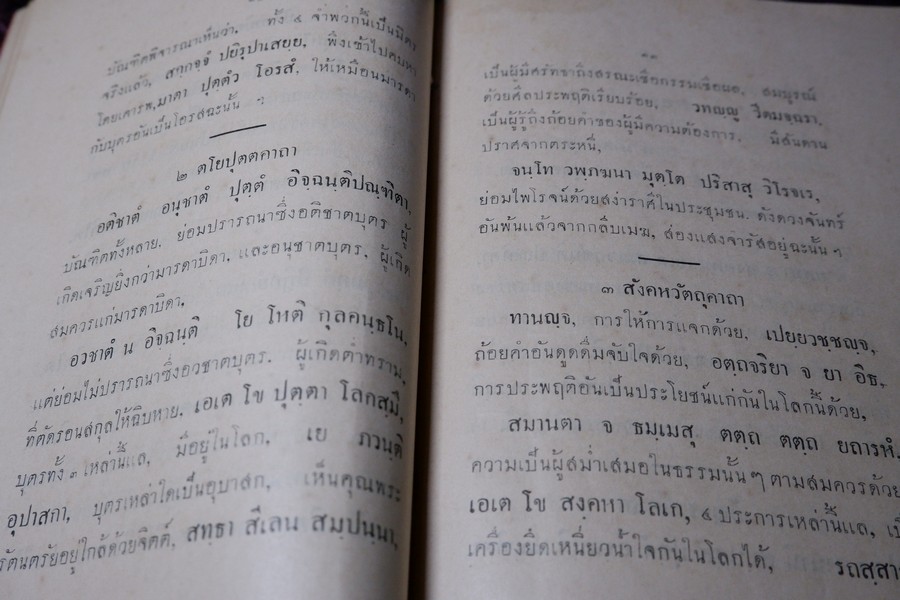 บัณฑิตพิจารณาเห็นว่า, ทั้ง ๔ จำพวกนี้เป็นมิตร
จริงแล้ว, สกฺกจฺจํ ปยิรุปาเสยฺย, พึงเข้าไปคบหา
โดยเคารพ, มาตา ปุตฺตํว โอรสํ, ให้เหมือนมารดา
กับบุตรอันเป็นโอรสฉะนั้น ฯ
๒ ตโยปุตตคาถา
อติชาตํ อนุชาตํ ปุตฺตํ อิจฺฉนฺติปณฺฑิตา,
บัณฑิตทั้งหลาย, ย่อมปรารถนาซึ่งอติชาตบุตร ผู้
เกิดเจริญยิ่งกว่ามารดาบิดา, และอนุชาตบุตร, ผู้เกิด
สมควรแก่มารดาบิดา,
อวชาตํ น อิจฺฉนฺติ โย โหติ กุลคนฺธโน,
แต่ย่อมไม่ปรารถนาซึ่งอวชาตบุตร, ผู้เกิดต่ำทราม,
ที่ตัดรอนสกุลให้ฉิบหาย, เอเต โข ปุตฺตา โลกสฺมึ,
บุตรทั้ง ๓ เหล่านี้แล, มีอยู่ในโลก, เย ภวนฺติ
อุปาสกา, บุตรเหล่าใดเป็นอุบาสก, เห็นคุณพระ
รัตนตรัยอยู่ใกล้ด้วยจิตต์, สทฺธา สีเลน สมฺปนฺนา,
เป็นผู้มีศรัทธาถึงสรณะเชื่อกรรมเชื่อผล, สมบูรณ์
ด้วยศีลประพฤติเรียบร้อย, วทญฺญู วีตมจฺฉรา,
เป็นผู้รู้ถึงถ้อยคำของผู้มีความต้องการ, มีสันดาน
ปราศจากตระหนี่,
จนฺโท วพฺภฆนา มุตฺโต ปริสาสุ วิโรจเร,
ย่อมไพโรจน์ด้วยสง่าราศีในประชุมชน, ดังดวงจันทร์
อันพ้นแล้วจากกลีบเมฆ, ส่องแสงจำรัสอยู่ฉะนั้น ฯ
๓ สังคหวัตถุคาถา
ทานญฺจ, การให้การแจกด้วย, เปยฺยวชฺชญฺจ,
ถ้อยคำอันดูดดื่มจับใจด้วย, อตฺถจริยา จ ยา อิธ,
การประพฤติอันเป็นประโยชน์แก่กันในโลกนี้ด้วย,
สมานตา จ ธมฺเมสุ ตตฺถ ตตฺถ ยถารหํ,
ความเป็นผู้สม่ำเสมอในธรรมนั้น ๆ ตามสมควรด้วย
เอเต โข สงฺคหา โลเก, ๔ ประการเหล่านี้แล, เป็
เครื่องยึดเหนี่ยวน้ำใจกันในโลกได้, รถสฺสา